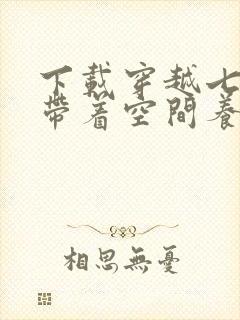 下載穿越七
帶着空間養
相思無憂